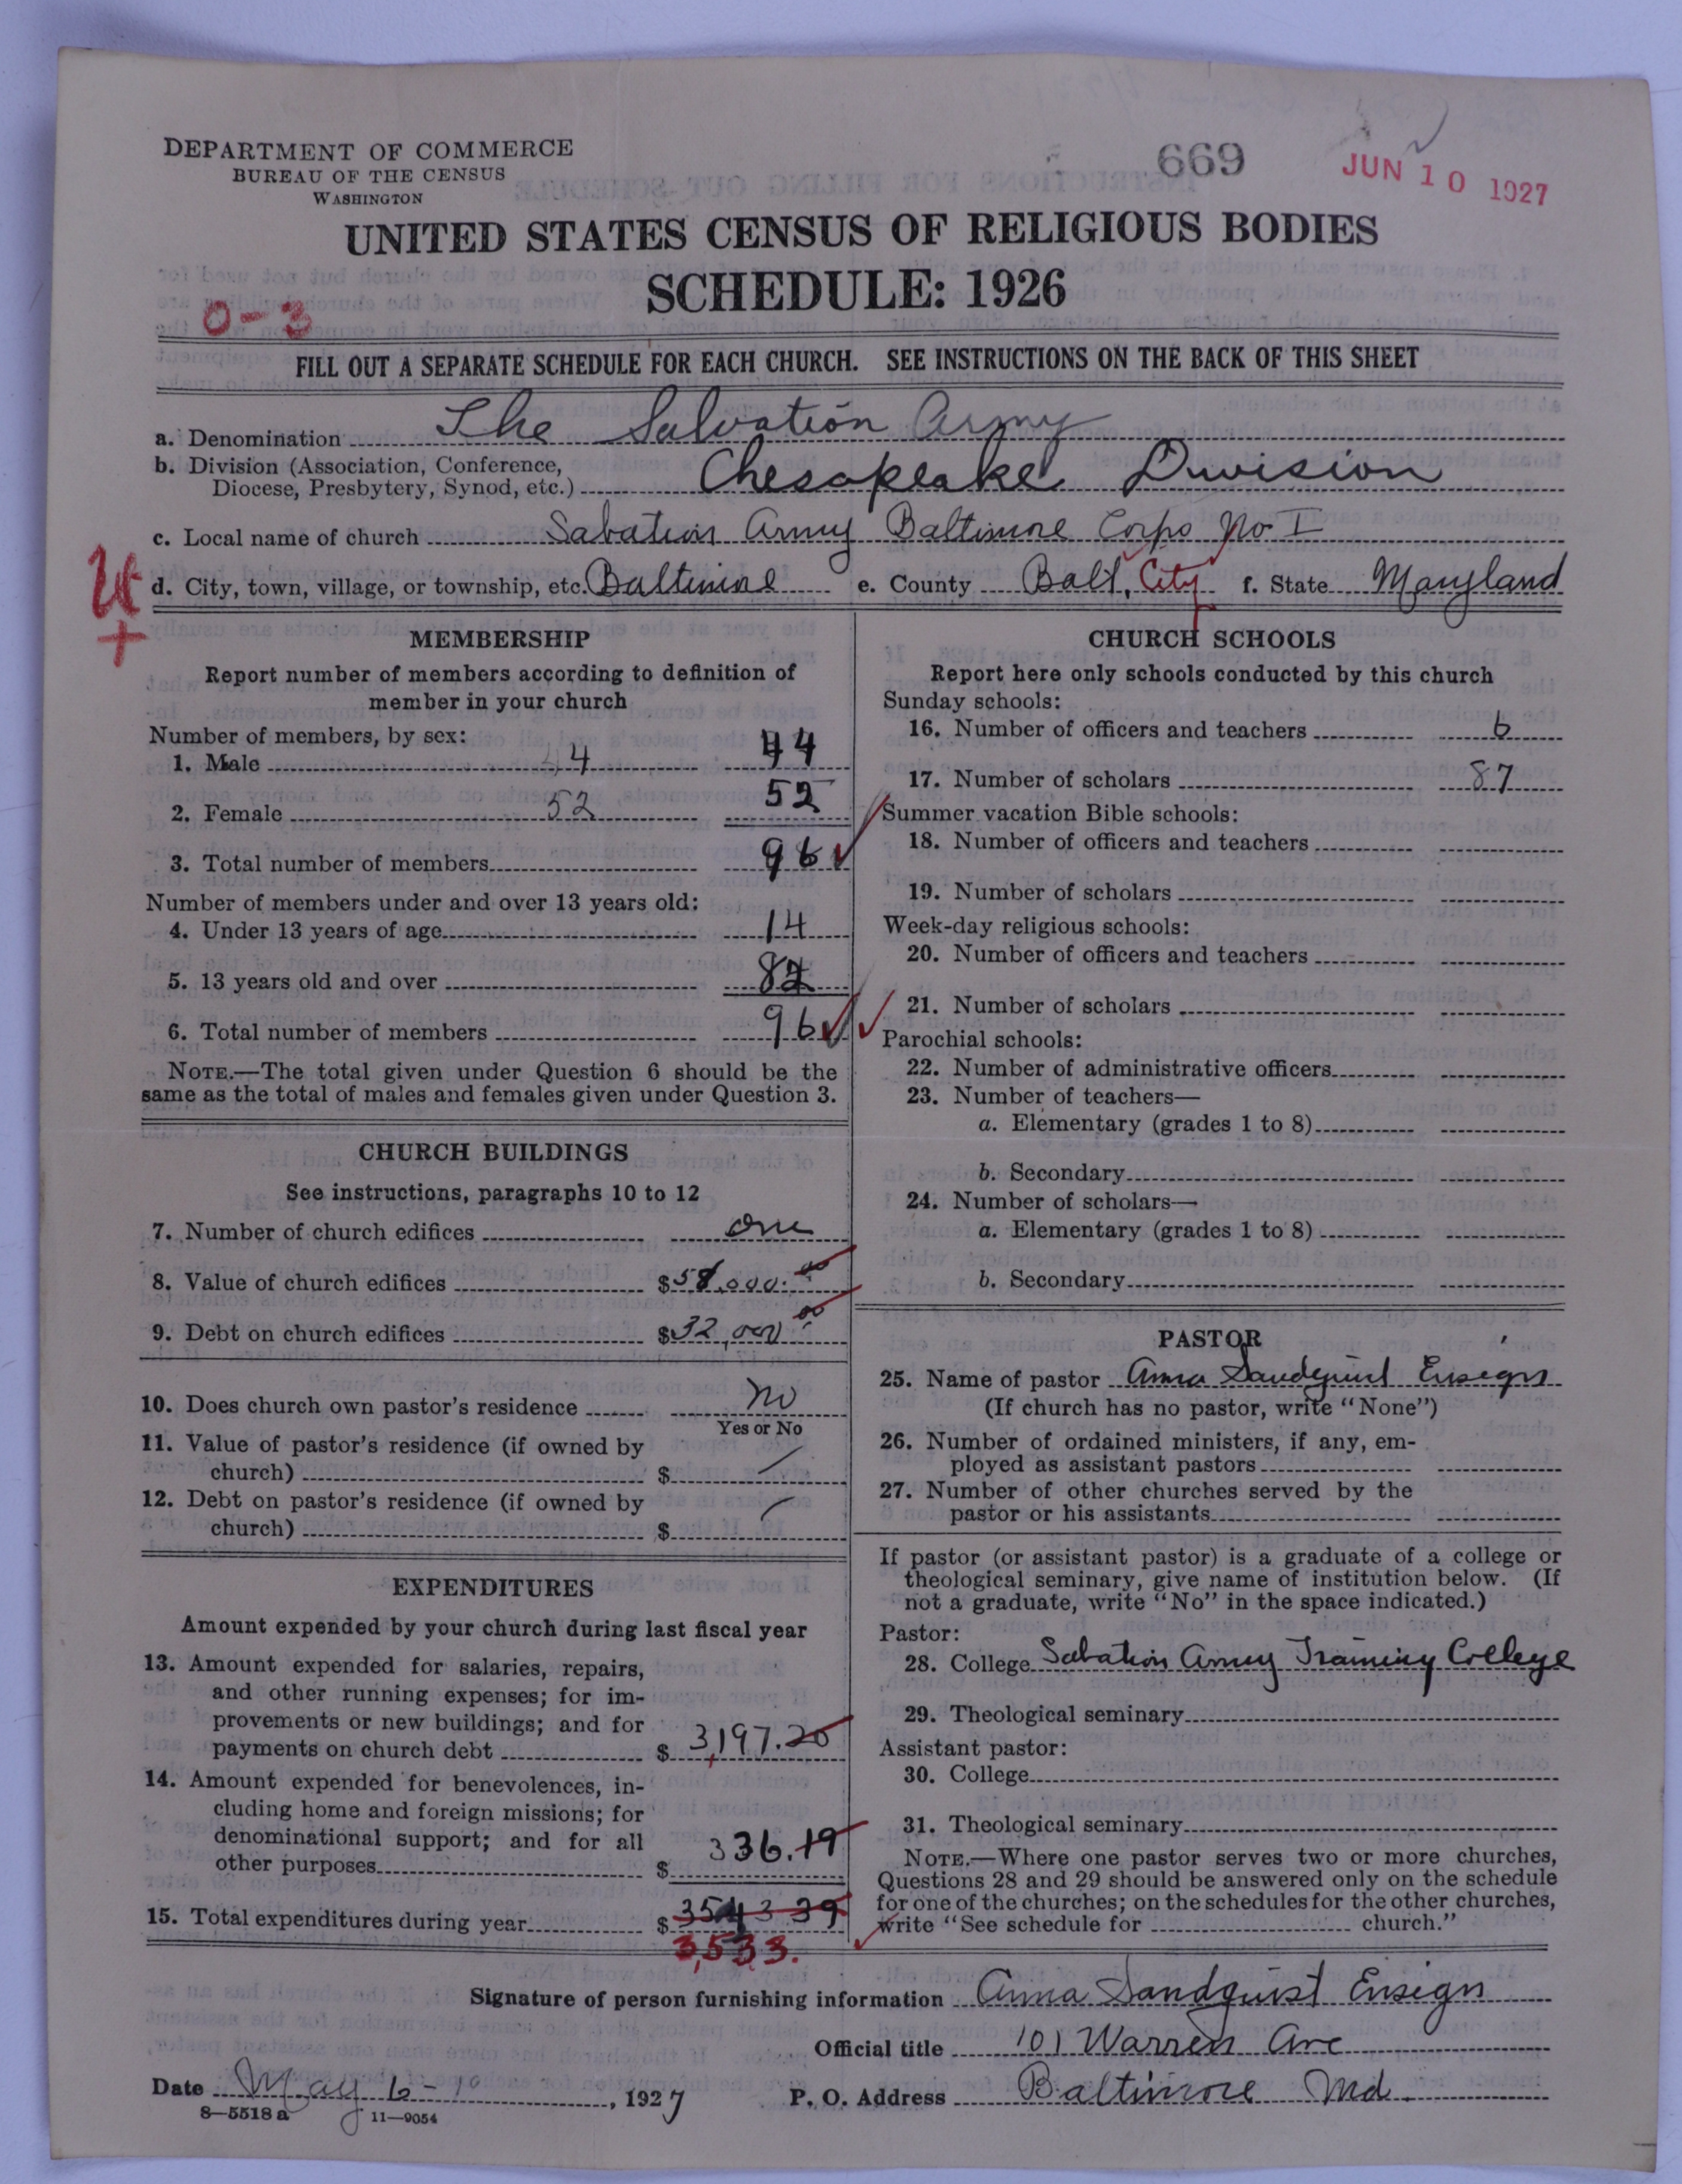 DEPARTMENT OF COMMERCE
BUREAU OF THE CENSUS
WASHINGTON
669
JUN 10 1927
UNITED STATES CENSUS OF RELIGIOUS BODIES
SCHEDULE: 1926
0-3
FILL OUT A SEPARATE SCHEDULE FOR EACH CHURCH. SEE INSTRUCTIONS ON THE BACK OF THIS SHEET
a. Denomination The Salvation Army
b. Division (Association, Conference, Diocese, Presbytery, Synod, etc.) Chesapeake Division
c. Local name of church Salvation Army Baltimore Corps No I
d. City, town, village, or township, etc. Baltimore e. County Balt. City f. State Maryland
MEMBERSHIP
Report number of members according to definition of
member in your church
Number of members, by sex:
1. Male 44 44
2. Female 52 52
3. Total number of members 96
Number of members under and over 13 years old:
4. Under 13 years of age 14
5. 13 years old and over 82
6. Total number of members 96
NOTE.—The total given under Question 6 should be the
same as the total of males and females given under Question 3.
CHURCH BUILDINGS
See instructions, paragraphs 10 to 12
7. Number of church edifices one
8. Value of church edifices $58,000.00
9. Debt on church edifices $32,000.00
10. Does church own pastor's residence No
Yes or No
11. Value of pastor's residence (if owned by
church) $ /
12. Debt on pastor's residence (if owned by
church) $ /
EXPENDITURES
Amount expended by your church during last fiscal year
13. Amount expended for salaries, repairs,
and other running expenses; for im-
provements or new buildings; and for
payments on church debt $ 3,197.20
14. Amount expended for benevolences, in-
cluding home and foreign missions; for
denominational support; and for all
other purposes $ 336.19
15. Total expenditures during year $ 3543 39
3,533.
CHURCH SCHOOLS
Report here only schools conducted by this church
Sunday schools:
16. Number of officers and teachers 6
17. Number of scholars 87
Summer vacation Bible schools:
18. Number of officers and teachers
19. Number of scholars
Week-day religious schools:
20. Number of officers and teachers
21. Number of scholars
Parochial schools:
22. Number of administrative officers
23. Number of teachers—
a. Elementary (grades 1 to 8)
b. Secondary
24. Number of scholars—
a. Elementary (grades 1 to 8)
b. Secondary
PASTOR
25. Name of pastor Anna Sandquist Ensign
(If church has no pastor, write "None")
26. Number of ordained ministers, if any, em-
ployed as assistant pastors
27. Number of other churches served by the
pastor or his assistants
If pastor (or assistant pastor) is a graduate of a college or
theological seminary, give name of institution below. (If
not a graduate, write "No" in the space indicated.)
Pastor:
28. College Salvation Army Training College
29. Theological seminary
Assistant pastor:
30. College
31. Theological seminary
NOTE.—Where one pastor serves two or more churches,
Questions 28 and 29 should be answered only on the schedule
for one of the churches; on the schedules for the other churches,
write "See schedule for church."
Signature of person furnishing information Anna Sandquist Ensign
Official title 101 Warren Ave
Date May 6-, 1927 P. O. Address Baltimore Md.
8-5518 a 11-9054